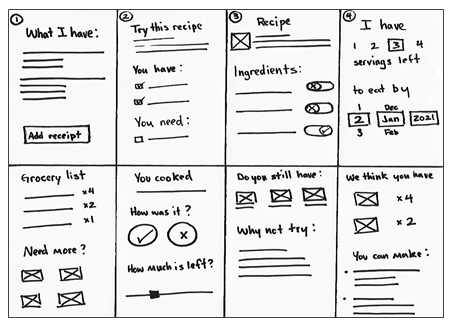 1
What I have:
Add receipt
2
Try this recipe
You have:
You need:
3
Recipe
Ingredients:
4
I have
1 2 3 4
servings left
to eat by
1 Dec
2 Jan 2021
3 Feb
Grocery list
x4
x2
x1
Need more?
You cooked
How was it?
How much is left?
Do you still have:
Why not try:
We think you have
x4
x2
You can make: